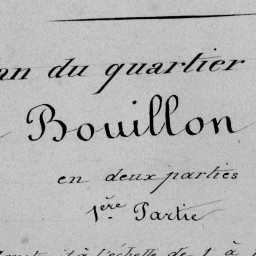 an du quartier
Bouillon
en deux parties
1ère Partie
l'échelle de 1 à